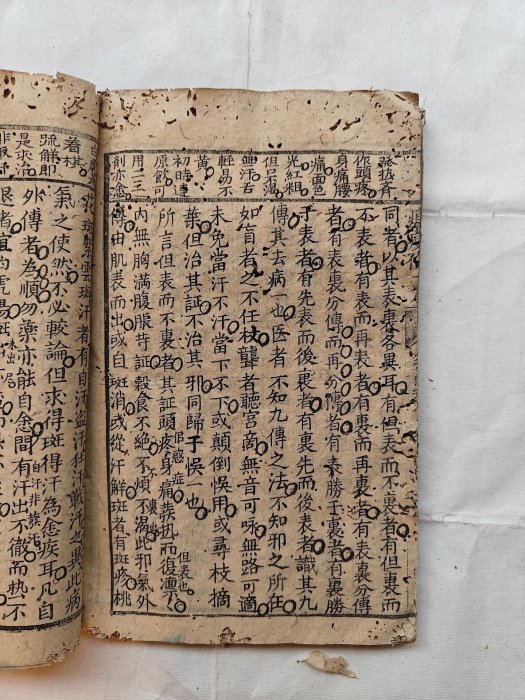 作頭疼
身痛腰
痛面色
光紅粗
軽易不
黄
初時
原飲可
用二三
剤亦愈
同者以其表裏各異耳有但表而不裏者有但裏而
不表者有表而再表者有裏而再裏者有表裏分傳
者有表裏分傳而再分傳者有表勝于裏者有裏勝
于表者有先表而後裏者有裏先而後表者識其九
傳其去病一也医者不知九傳之法不知邪之所在
如盲者之不任杖聾者聽宮商無音可味無路可適
未免當汗不汗當下不下或顛倒悞用或尋枝摘
葉但治其証不治其邪同歸于悞一也
所言但表而不裏者其証頭疼身痛發热而復凛凛
但表也
内無胸滿腹脹等証穀食不絶不煩不渴此邪氣外
傳由肌表而出或自斑消或從汗鮮斑者有斑疹桃
看棋
鮮即
是求治
花斑紫雲斑汗者有自汗盗汗狂汗戰汗之異此病
氣之使然不必較論但求得斑得汗為愈疾耳凡自
外傳者為順勿藥亦能自愈間有汗出不徹而热不
退者宜白虎湯斑